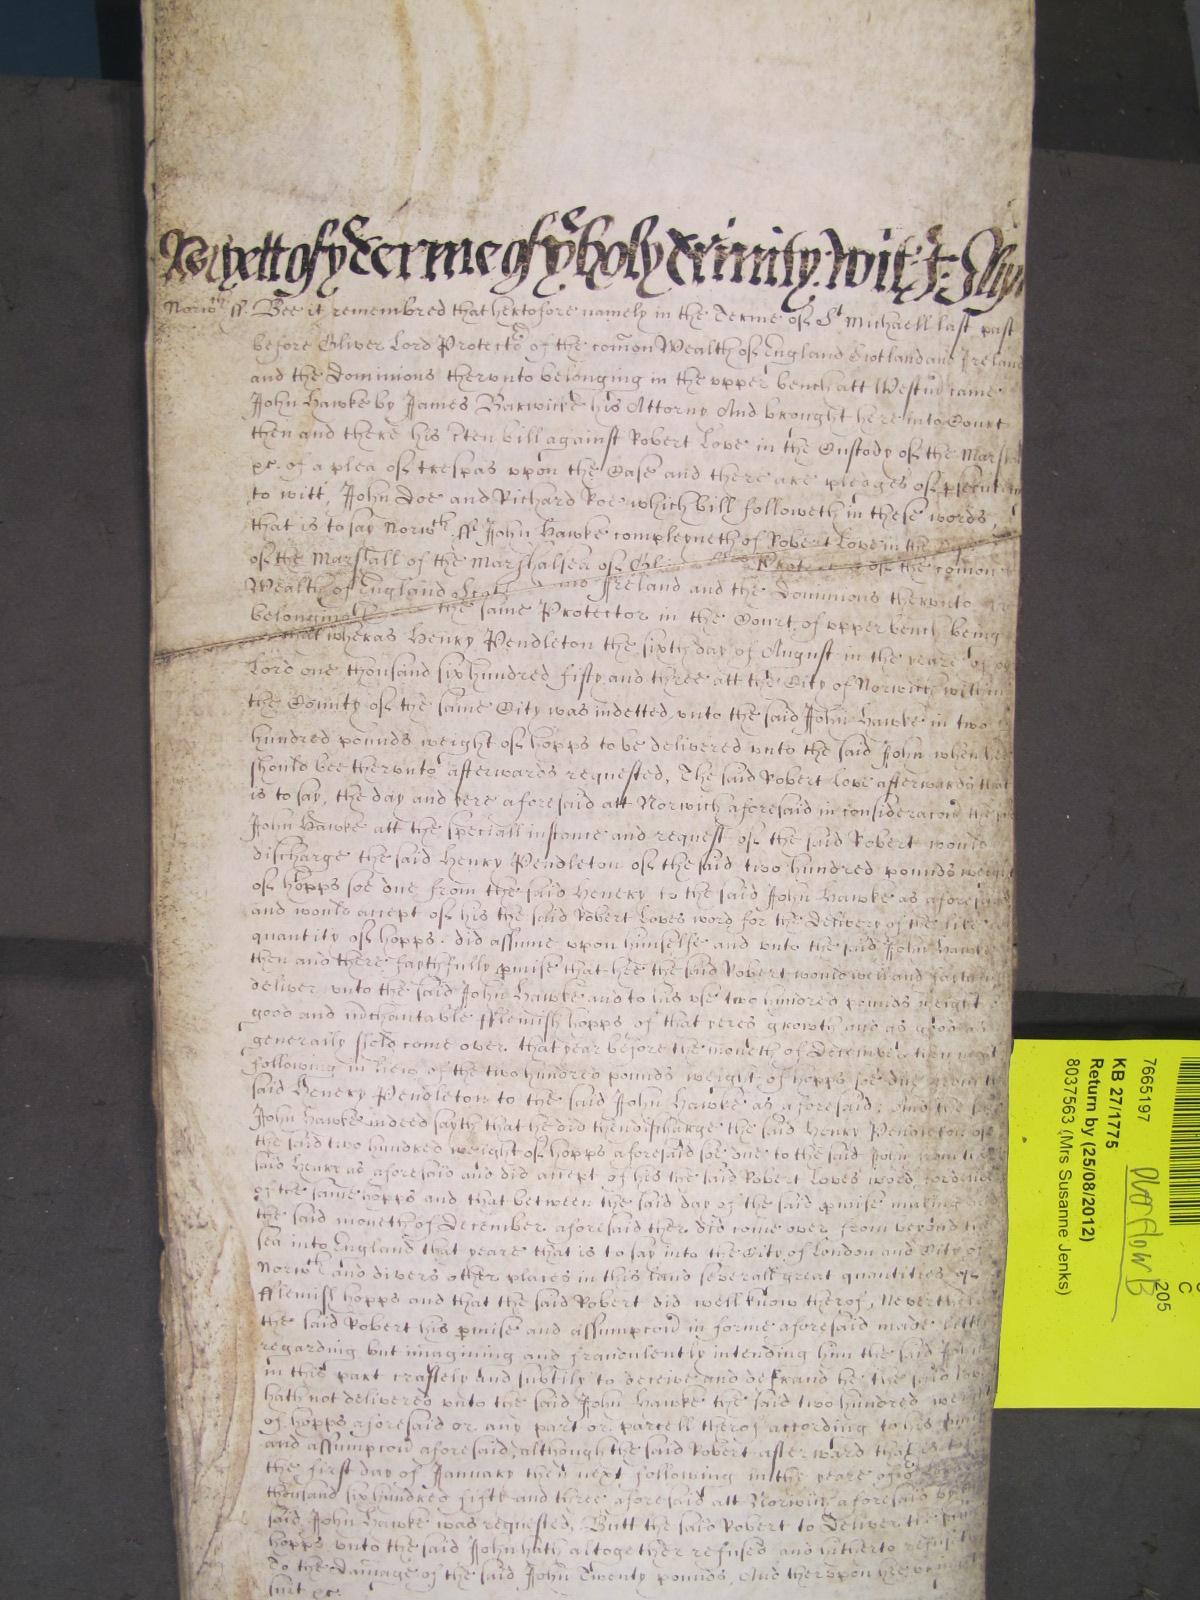 yett of ye Terme of ye holy Trinity. witt:
Norwch ss. Bee it remembred that hertofore namely in the Terme of St Michaell last past
before Oliver Lord Protector of the comon Wealth of England Scotland and Ireland
and the Dominions therunto belonging in the upper bench att Westm came
John Hawke by James Barwicke his Attorny And brought here into Court
then and there his cten bill against Robert Love in the Custody of the Mars
&c. of a plea of trespas upon the Case and there are pledges of psecut
to witt, John Doe and Richard Roe which bill followeth in these words,
that is to say Norwch ss John Hawke compleyneth of Robert Love in the
of the Marshall of the Marshalsea of the comon
Wealth of England Ireland and the Dominions therunto
belonging the same Protector in the Court of upper bench being
that wheras Henry Pendleton the sixth day of August in the yeare of o
Lord one thousand six hundred fifty and three att the City of Norwich within
the County of the same City was indetted unto the said John Hawke in two
hundred pounds weight of hopps to be delivered unto the said John when hee
should bee therunto afterwards requested, The said Robert Love afterwards that
is to say, the day and yere aforesaid att Norwich aforesaid in consideracon the
John Hawke att the speciall instance and request of the said Robert would
discharge the said Henry Pendleton of the said two hundred pounds weight
of hopps soe due from the said Henery to the said John Hawke as aforesaid
and would accept of his the said Robert Loves word for the delivery of the like
quantity of hopps. did assume upon himselfe and unto the said John Hawke
then and there faythfully pmise that hee the said Robert would well and
deliver unto the said John Hawke and to his use two hundred pounds weight
good and mchantable fflemish hopps of that yeres growth and as good as
generally should come over that year before the moneth of December then next
following in liew of the two hundred pounds weight of hopps soe due from the
said Henery Pendleton to the said John Hawke as aforesaid: And the said
John Hawke indeed sayth that he did then discharge the said Henry Pendleton of
the said two hundred weight of hopps aforesaid soe due to the said John from the
said Henry as aforesaid and did accept of his the said Robert Loves word
of the same hopps and that between the said day of the said pmise making
the said moneth of December aforesaid ther did come over from beyond the
sea into England that yeare that is to say into the City of London and City of
Norwch and divers other places in this land severall great quantities of
fflemish hopps and that the said Robert did well know therof, Neverthel
the said Robert his pmise and assumpcon in forme aforesaid made little
regarding but imagining and fraudulently intending him the said John
in this part craftely and subtily to deceive and defraud he the said
hath not delivered unto the said John Hawke the said two hundred
of hopps aforesaid or any part or parcell therof according to his
and assumpcon aforesaid, although the said Robert afterward that is to
the first day of January then next following in the yeare of
thousand six hundred fifty and three aforesaid att Norwich aforesaid by
said John Hawke was requested, Butt the said Robert to deliver the
hopps unto the said John hath altogether refused and hitherto
To the damage of the said John Twenty pounds, And therupon hee
suit &c.
7665197
KB 27/1775
Return by (25/08/2012)
8037563 (Mrs Susanne Jenks)
C
205